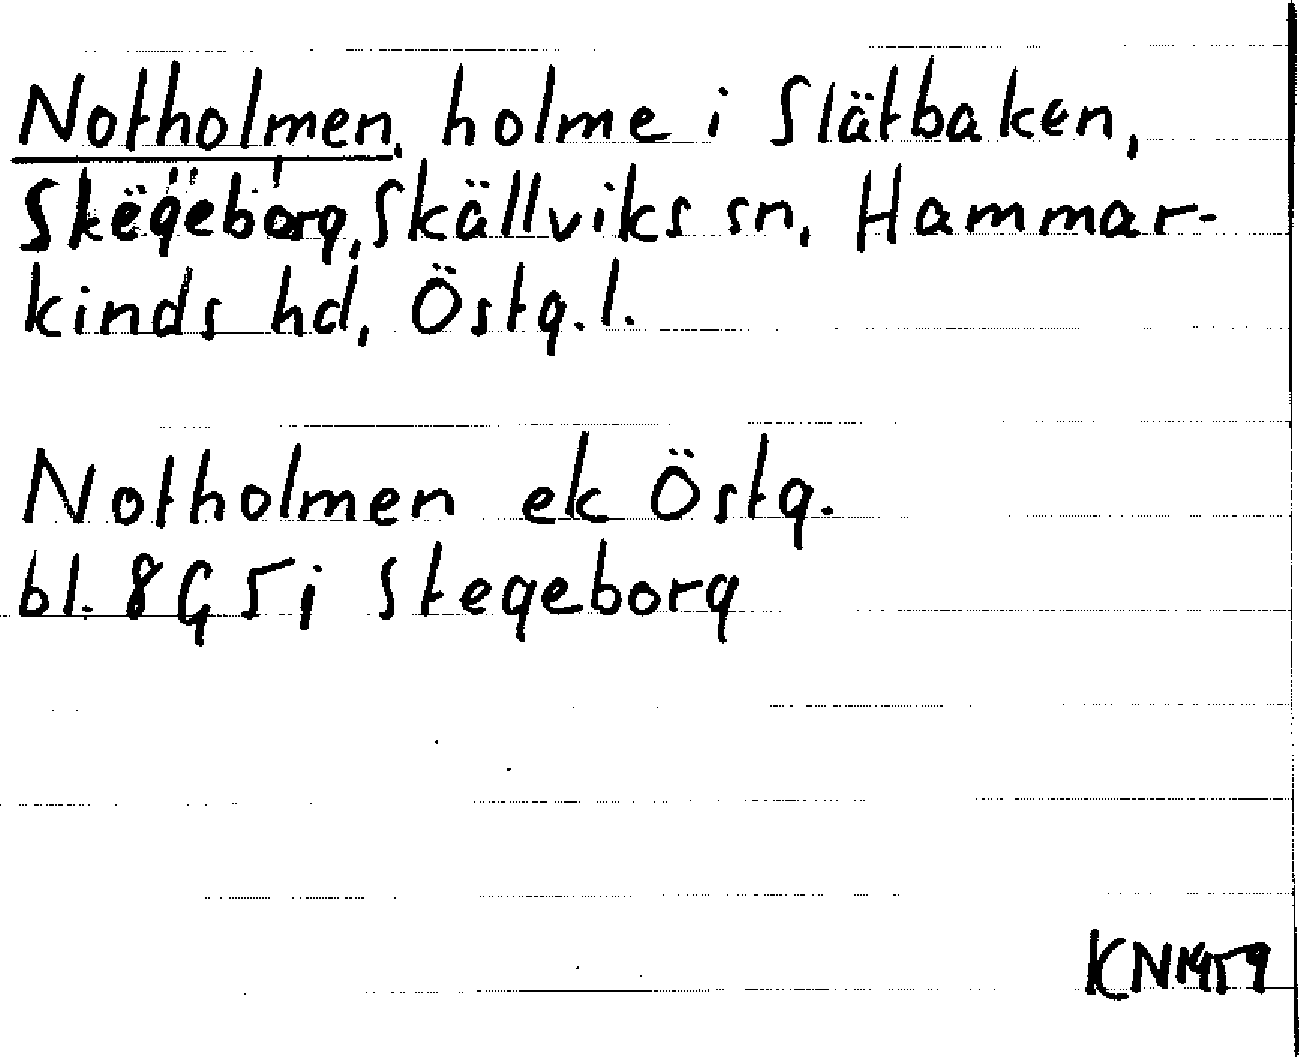 Notholmen, holme i Slätbaken,
Skëgeborg, Skällviks sn, Hammar-
kinds hd, Östg. l.
Notholmen ek Östg.
bl. 8G5i Stegeborg
KN1959